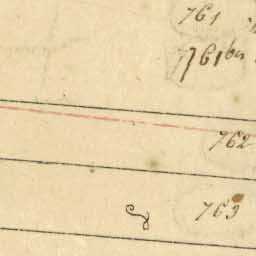 761
761 bis
762
763